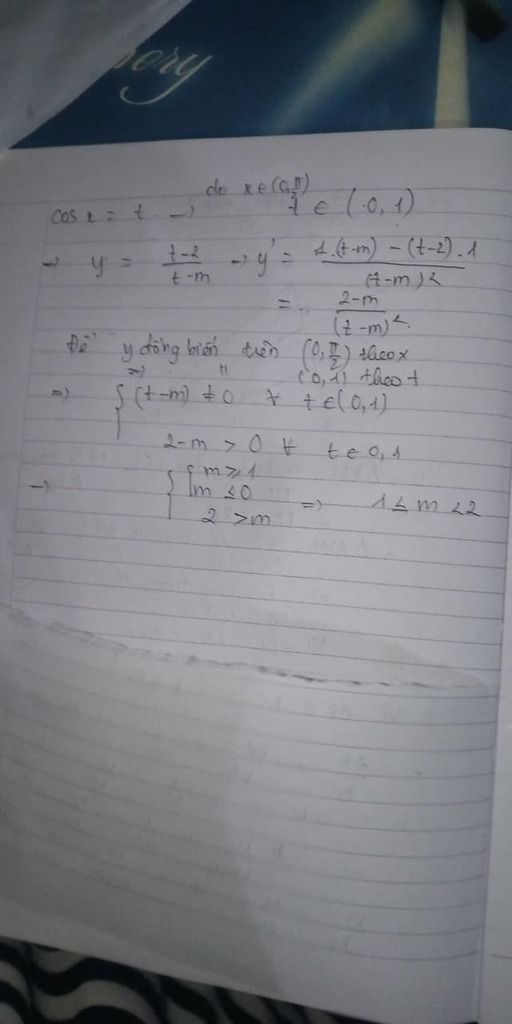 ory
do x ∈ (0, π/2)
cos x = t → t ∈ (0, 1)
→ y = (t-2)/(t-m) → y' = (1.(t-m) - (t-2).1)/(t-m)²
= (2-m)/(t-m)²
Để y đồng biến trên (0, π/2) theo x
=> " (0, 1) theo t
=> { (t-m) ≠ 0 ∀ t ∈ (0, 1)
2-m > 0 ∀ t ∈ 0, 1
→ { [ m ≥ 1
m ≤ 0
2 > m => 1 ≤ m < 2